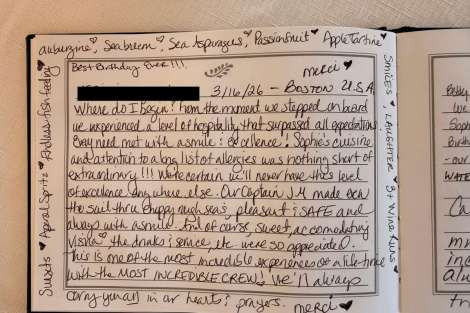 aubergine ♥ Sea bream ♥ Sea Asparagus ♥ Passionfruit ♥ Apple Tartine
Best Birthday Ever!!!
merci ♥
3/16/26 - BOSTON U.S.A.
Where do I begin? From the moment we stepped on board
we experienced a level of hospitality that surpassed all expectations.
Every need met with a smile & excellence! Sophie's cuisine
and attention to a long list of allergies was nothing short of
extraordinary!!! We're certain we'll never have this level
of excellence anywhere else. Our Captain J.M. made even
the sail thru choppy rough seas, pleasant & SAFE and
always with a smile. And of course, sweet, accomodating
the drinks & service, etc were so appreciated.
This is one of the most incredible experiences of a life-time
with the MOST INCREDIBLE CREW! We'll always
carry you all in our hearts & prayers.
merci ♥
Sunsets ♥ Aperol Spritz ♥ Endless fish feeding
SMILES, LAUGHTER ♥